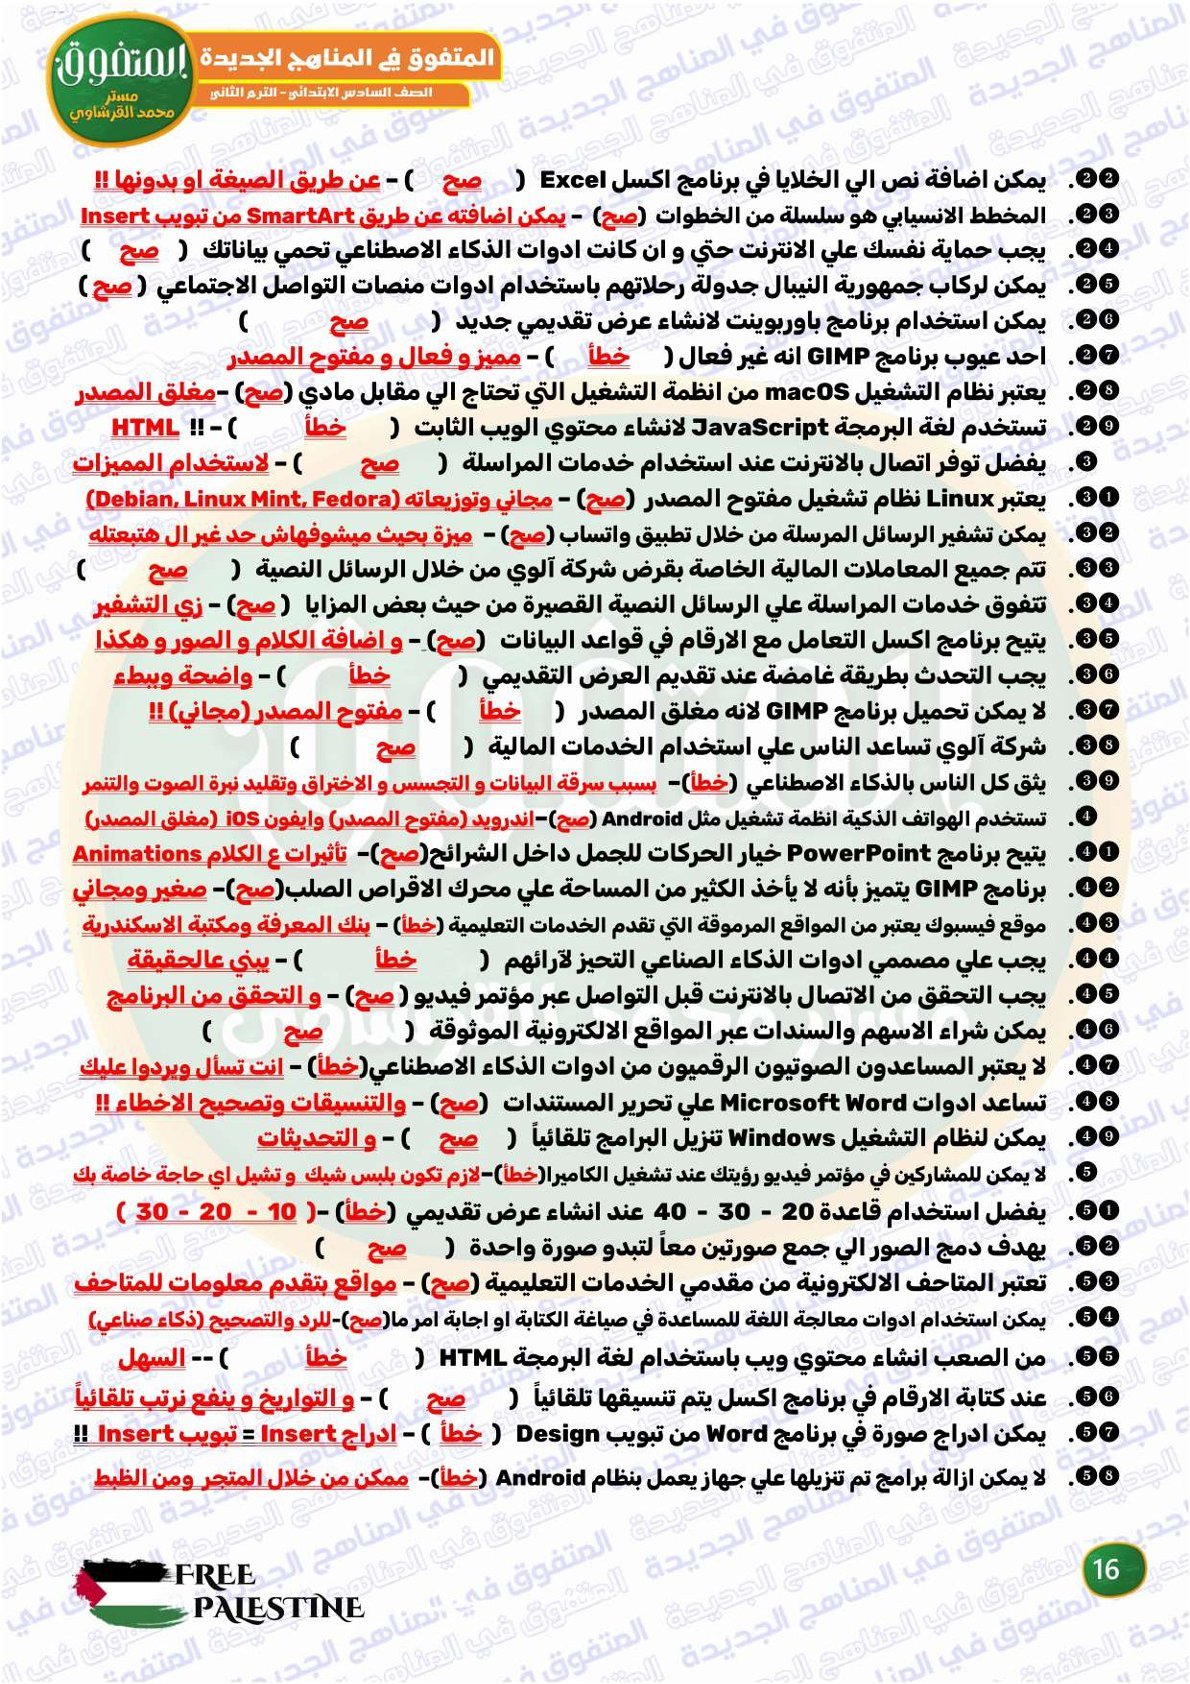 المتفوق
مستر
محمد القرشاوي
المتفوق في المناهج الجديدة
الصف السادس الابتدائي - الترم الثاني
22. يمكن اضافة نص الي الخلايا في برنامج اكسل Excel ( صح ) - عن طريق الصيغة او بدونها !!
23. المخطط الانسيابي هو سلسلة من الخطوات (صح) - يمكن اضافته عن طريق SmartArt من تبويب Insert
24. يجب حماية نفسك علي الانترنت حتي و ان كانت ادوات الذكاء الاصطناعي تحمي بياناتك ( صح )
25. يمكن لركاب جمهورية النيبال جدولة رحلاتهم باستخدام ادوات منصات التواصل الاجتماعي ( صح )
26. يمكن استخدام برنامج باوربوينت لانشاء عرض تقديمي جديد ( صح )
27. احد عيوب برنامج GIMP انه غير فعال ( خطأ ) - مميز و فعال و مفتوح المصدر
28. يعتبر نظام التشغيل macOS من انظمة التشغيل التي تحتاج الي مقابل مادي (صح) -مغلق المصدر
29. تستخدم لغة البرمجة JavaScript لانشاء محتوي الويب الثابت ( خطأ ) - !! HTML
3. يفضل توفر اتصال بالانترنت عند استخدام خدمات المراسلة ( صح ) - لاستخدام المميزات
31. يعتبر Linux نظام تشغيل مفتوح المصدر (صح) - مجاني وتوزيعاته (Debian, Linux Mint, Fedora)
32. يمكن تشفير الرسائل المرسلة من خلال تطبيق واتساب (صح) - ميزة بحيث ميشوفهاش حد غير ال هتبعتله
33. تتم جميع المعاملات المالية الخاصة بقرض شركة آلوي من خلال الرسائل النصية ( صح )
34. تتفوق خدمات المراسلة علي الرسائل النصية القصيرة من حيث بعض المزايا ( صح) - زي التشفير
35. يتيح برنامج اكسل التعامل مع الارقام في قواعد البيانات (صح)- و اضافة الكلام و الصور و هكذا
36. يجب التحدث بطريقة غامضة عند تقديم العرض التقديمي ( خطأ ) - واضحة وببطء
37. لا يمكن تحميل برنامج GIMP لانه مغلق المصدر ( خطأ ) - مفتوح المصدر (مجاني) !!
38. شركة آلوي تساعد الناس علي استخدام الخدمات المالية ( صح )
39. يثق كل الناس بالذكاء الاصطناعي (خطأ)- بسبب سرقة البيانات و التجسس و الاختراق وتقليد نبرة الصوت والتنمر
4. تستخدم الهواتف الذكية انظمة تشغيل مثل Android (صح)-اندرويد (مفتوح المصدر) وايفون iOS (مغلق المصدر)
41. يتيح برنامج PowerPoint خيار الحركات للجمل داخل الشرائح(صح)- تأثيرات ع الكلام Animations
42. برنامج GIMP يتميز بأنه لا يأخذ الكثير من المساحة علي محرك الاقراص الصلب(صح)- صغير ومجاني
43. موقع فيسبوك يعتبر من المواقع المرموقة التي تقدم الخدمات التعليمية (خطأ) - بنك المعرفة ومكتبة الاسكندرية
44. يجب علي مصممي ادوات الذكاء الصناعي التحيز لآرائهم ( خطأ ) - يبني عالحقيقة
45. يجب التحقق من الاتصال بالانترنت قبل التواصل عبر مؤتمر فيديو ( صح) - و التحقق من البرنامج
46. يمكن شراء الاسهم والسندات عبر المواقع الالكترونية الموثوقة ( صح )
47. لا يعتبر المساعدون الصوتيون الرقميون من ادوات الذكاء الاصطناعي(خطأ) - انت تسأل ويردوا عليك
48. تساعد ادوات Microsoft Word علي تحرير المستندات (صح) - والتنسيقات وتصحيح الاخطاء !!
49. يمكن لنظام التشغيل Windows تنزيل البرامج تلقائياً ( صح ) - و التحديثات
5. لا يمكن للمشاركين في مؤتمر فيديو رؤيتك عند تشغيل الكاميرا(خطأ)-لازم تكون بلبس شيك و تشيل اي حاجة خاصة بك
51. يفضل استخدام قاعدة 20 - 30 - 40 عند انشاء عرض تقديمي (خطأ) -( 10 - 20 - 30 )
52. يهدف دمج الصور الي جمع صورتين معاً لتبدو صورة واحدة ( صح )
53. تعتبر المتاحف الالكترونية من مقدمي الخدمات التعليمية (صح) - مواقع بتقدم معلومات للمتاحف
54. يمكن استخدام ادوات معالجة اللغة للمساعدة في صياغة الكتابة او اجابة امر ما(صح)-للرد والتصحيح (ذكاء صناعي)
55. من الصعب انشاء محتوي ويب باستخدام لغة البرمجة HTML ( خطأ ) -- السهل
56. عند كتابة الارقام في برنامج اكسل يتم تنسيقها تلقائياً ( صح ) - و التواريخ و ينفع نرتب تلقائياً
57. يمكن ادراج صورة في برنامج Word من تبويب Design ( خطأ ) - ادراج Insert = تبويب Insert !!
58. لا يمكن ازالة برامج تم تنزيلها علي جهاز يعمل بنظام Android (خطأ)- ممكن من خلال المتجر ومن الظبط
FREE
PALESTINE
16